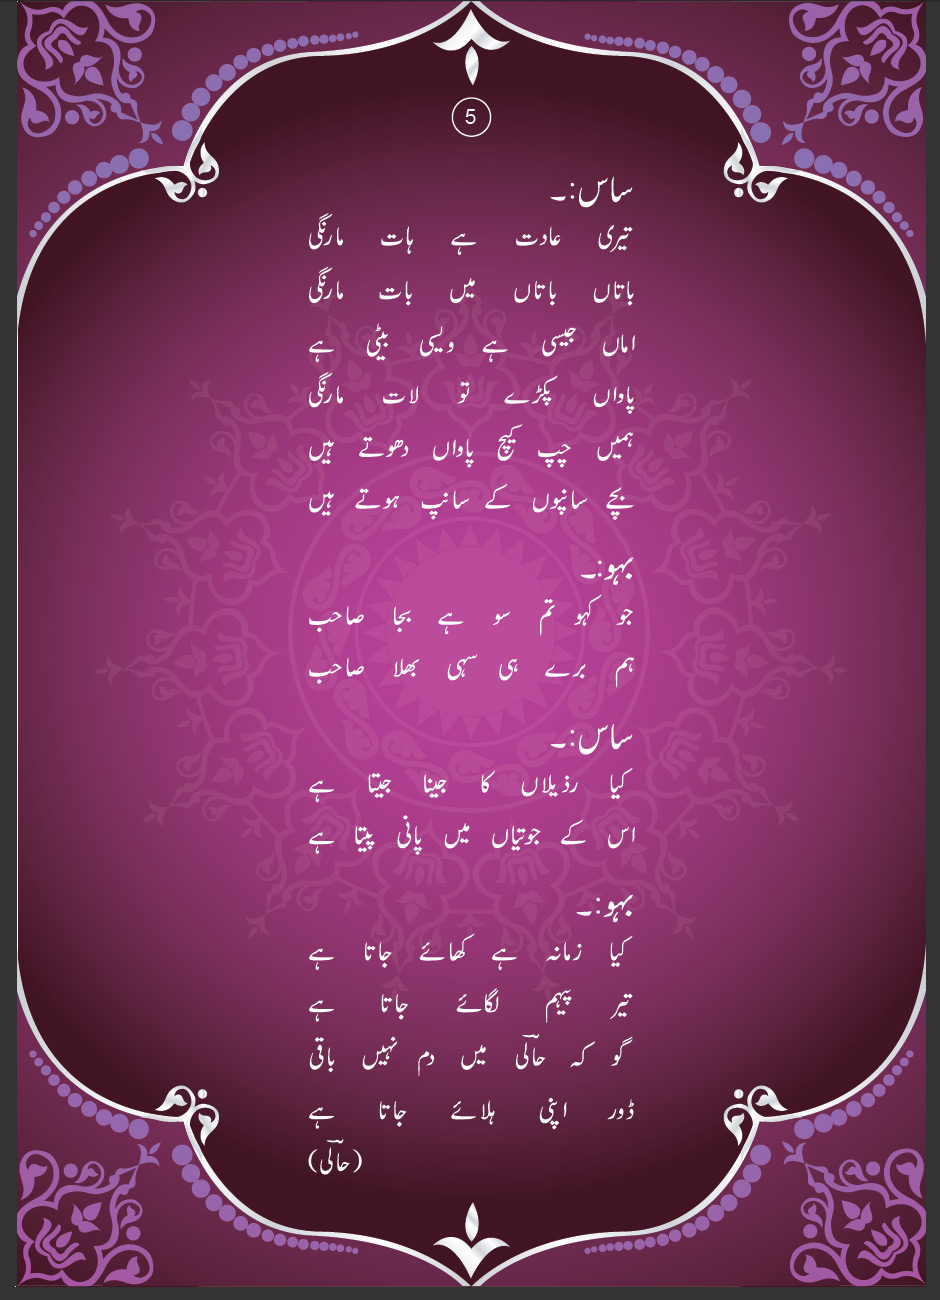 5
ساس:۔
تیری عادت ہے ہات مارنگی
باتاں باتاں میں بات مارنگی
اماں جیسی ہے ویسی بیٹی ہے
پاواں پکڑے تو لات مارنگی
ہمیں چپ کیچ پاواں دھوتے ہیں
بچے سانپوں کے سانپ ہوتے ہیں
بہو:۔
جو کہو تم سو ہے بجا صاحب
ہم برے ہی سہی بھلا صاحب
ساس:۔
کیا رذیلاں کا جینا جیتا ہے
اس کے جوتیاں میں پانی پیتا ہے
بہو:۔
کیا زمانہ ہے کھائے جاتا ہے
تیر پیہم لگائے جاتا ہے
گو کہ حالؔی میں دم نہیں باقی
ڈور اپنی ہلائے جاتا ہے
(حالؔی)